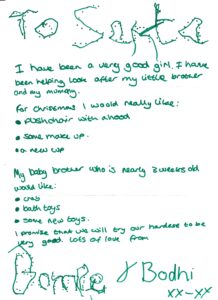 To Santa
I have been a very good girl. I have
been helping look after my little brother
and my mummy.
For christmas I would really like:
• pushchair with a hood
• some make up.
• a new cup
My baby brother who is nearly 3 weeks old
would like:
• crab
• bath toys
• some new toys.
I promise that we will try our hardest to be
very good. lots of love from
& Bodhi
xx-xx